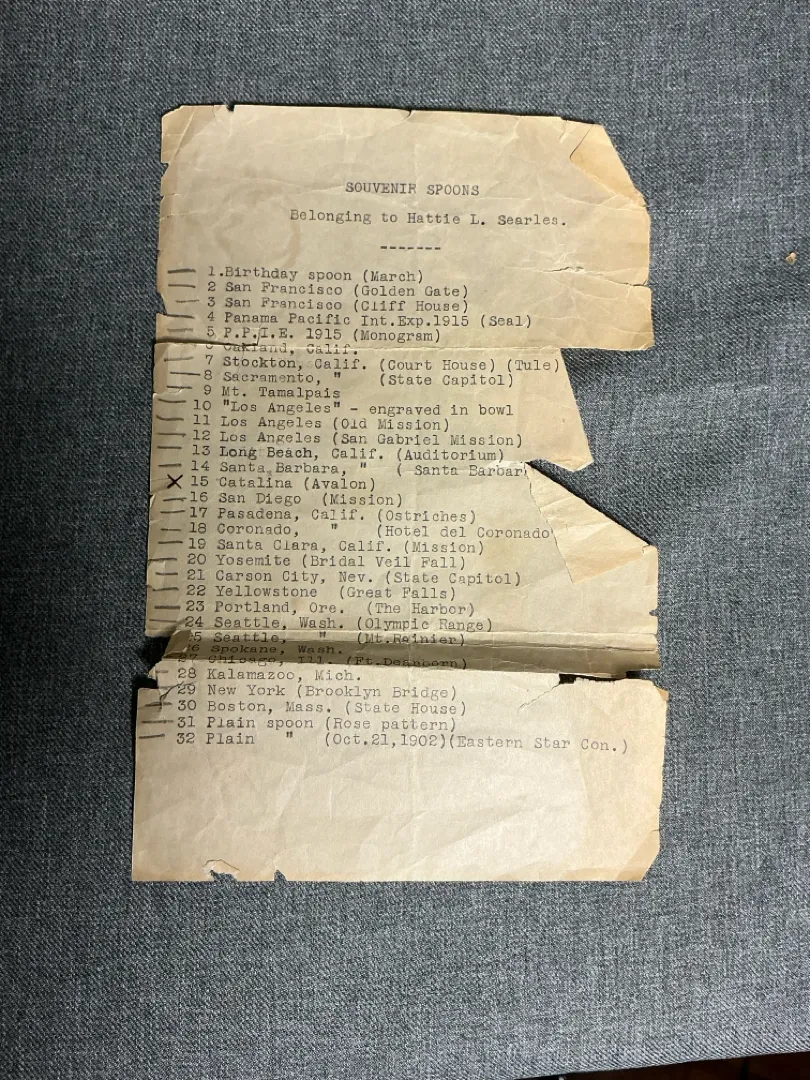 SOUVENIR SPOONS
Belonging to Hattie L. Searles.
-------
1.Birthday spoon (March)
2 San Francisco (Golden Gate)
3 San Francisco (Cliff House)
4 Panama Pacific Int.Exp.1915 (Seal)
5 P.P.I.E. 1915 (Monogram)
6 Oakland, Calif.
7 Stockton, Calif. (Court House) (Tule)
8 Sacramento, " (State Capitol)
9 Mt. Tamalpais
10 "Los Angeles" - engraved in bowl
11 Los Angeles (Old Mission)
12 Los Angeles (San Gabriel Mission)
13 Long Beach, Calif. (Auditorium)
14 Santa Barbara, " ( Santa Barbar
X 15 Catalina (Avalon)
16 San Diego (Mission)
17 Pasadena, Calif. (Ostriches)
18 Coronado, " (Hotel del Coronado
19 Santa Clara, Calif. (Mission)
20 Yosemite (Bridal Veil Fall)
21 Carson City, Nev. (State Capitol)
22 Yellowstone (Great Falls)
23 Portland, Ore. (The Harbor)
24 Seattle, Wash. (Olympic Range)
25 Seattle, " (Mt.Rainier)
26 Spokane, Wash.
27 Chicago, Ill. (Ft.Dearborn)
28 Kalamazoo, Mich.
29 New York (Brooklyn Bridge)
30 Boston, Mass. (State House)
31 Plain spoon (Rose pattern)
32 Plain " (Oct.21,1902)(Eastern Star Con.)